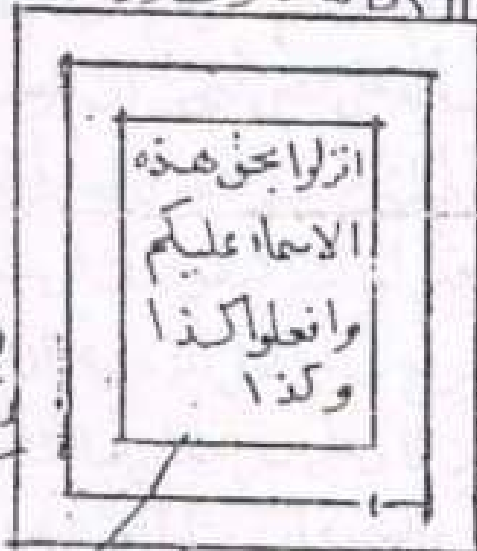 انزلوا بحق هذه
الاسماء عليكم
وافعلوا كذا
وكذا